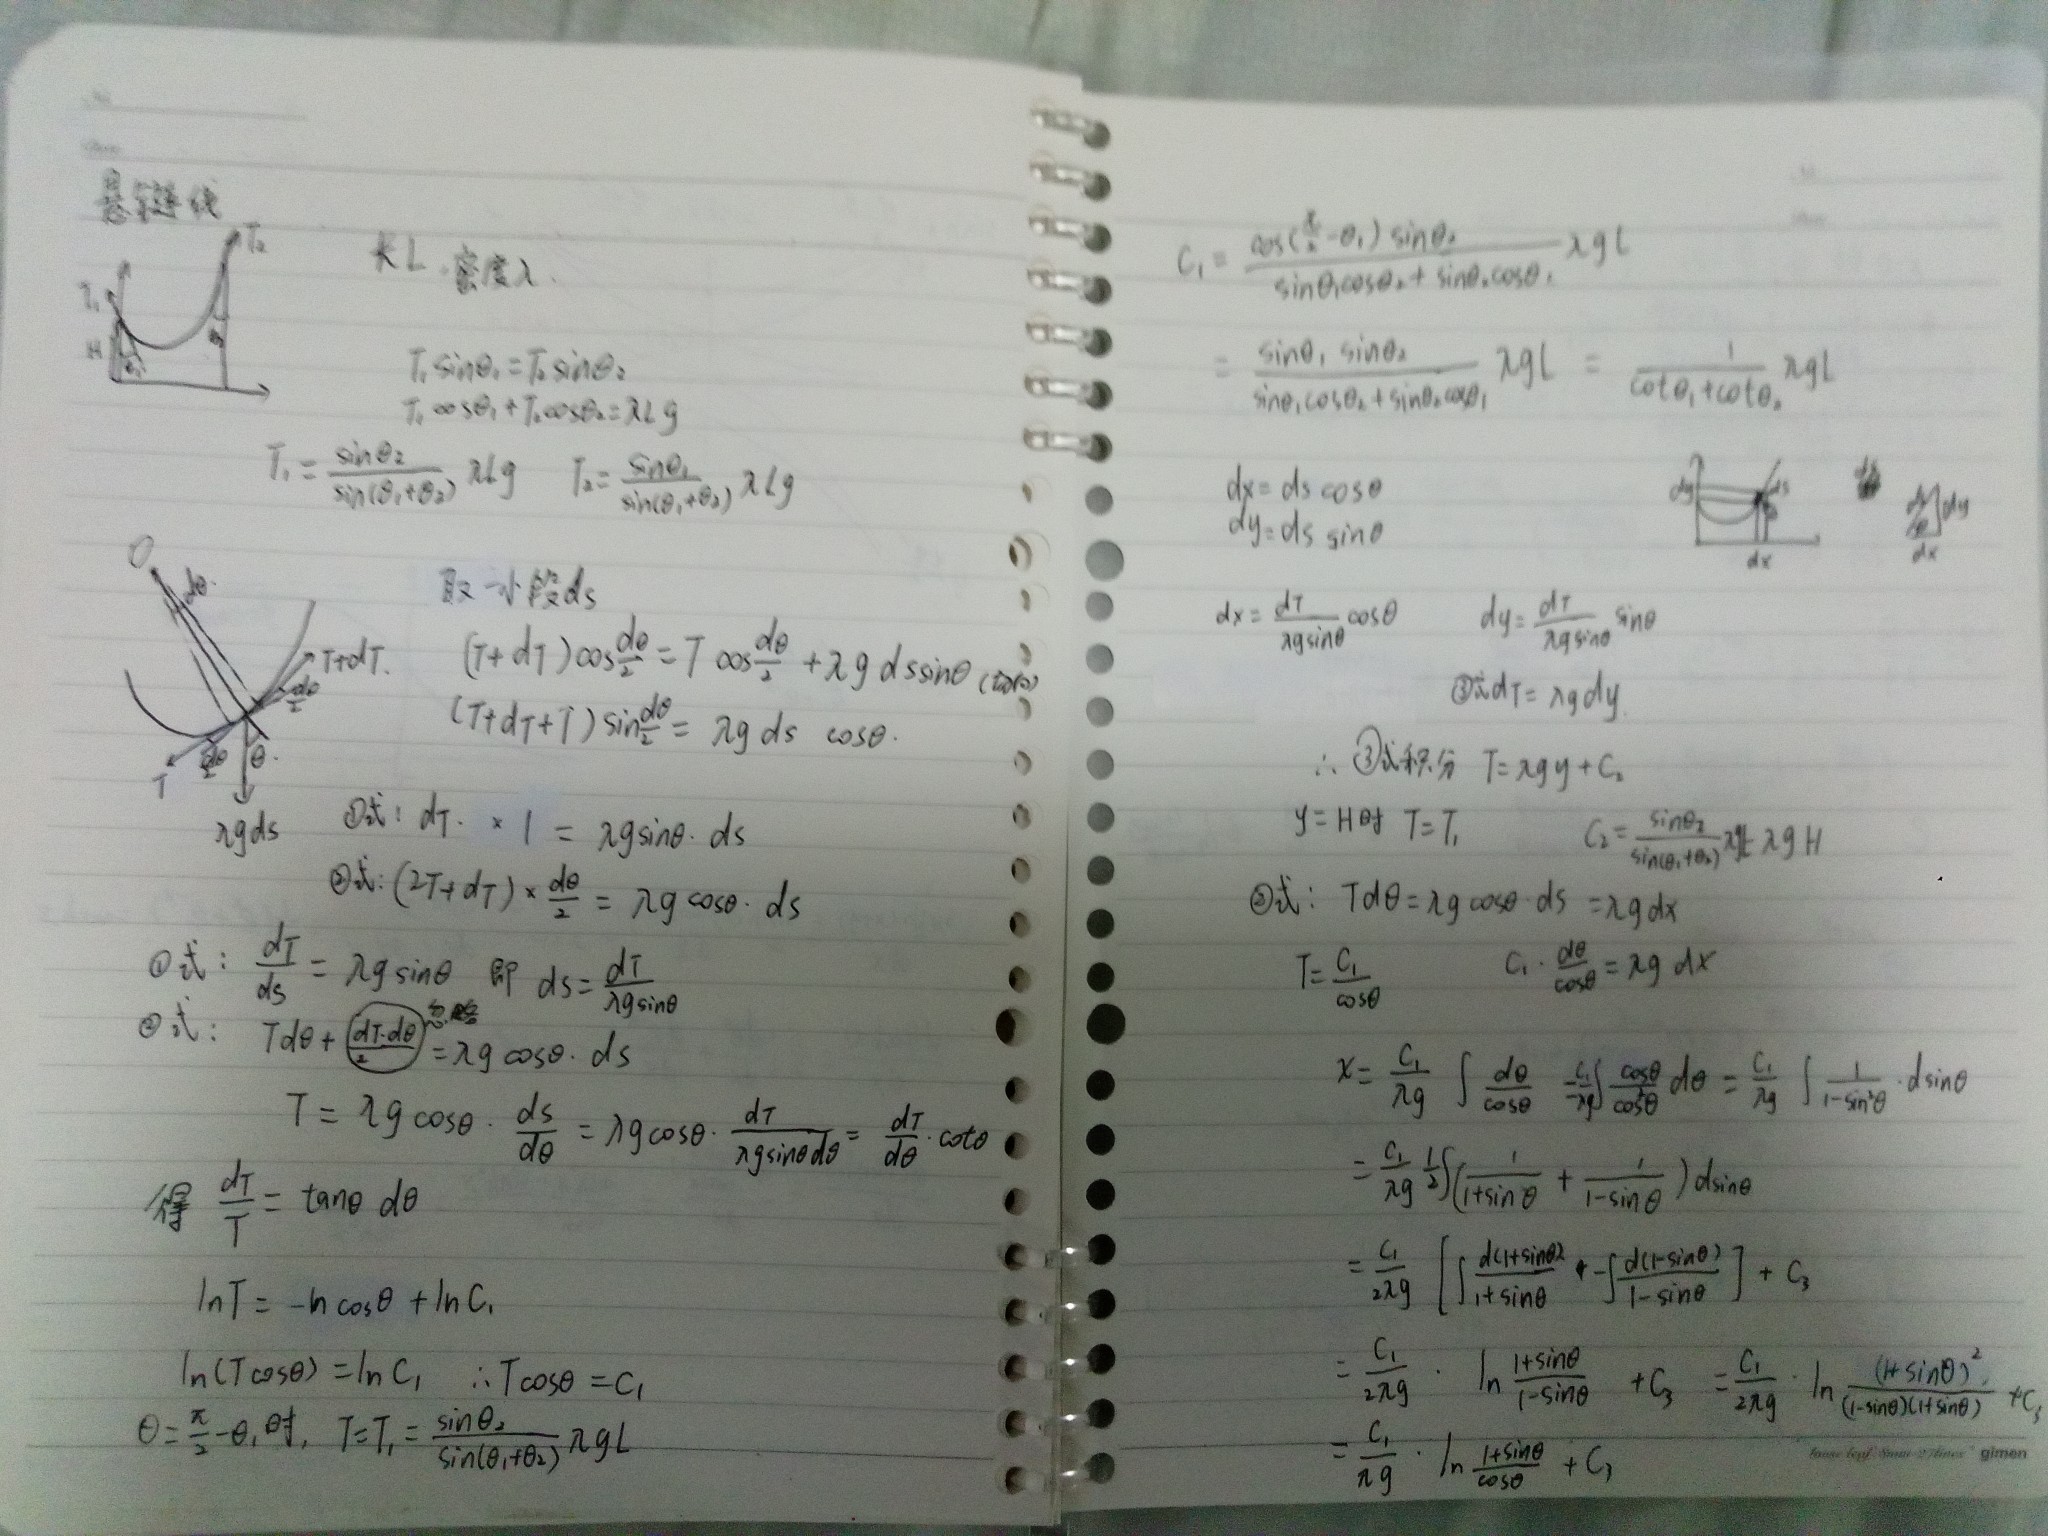 悬链线
T₂
T₁
H
θ₁
θ₂
长L. 密度λ.
T₁sinθ₁=T₂sinθ₂
T₁cosθ₁+T₂cosθ₂=λLg
T₁=sinθ₂/sin(θ₁+θ₂) λLg T₂=sinθ₁/sin(θ₁+θ₂) λLg
O
dθ.
T+dT.
dθ/2
T
dθ/2
θ.
λgds
取一小段ds
(T+dT)cos dθ/2=T cos dθ/2+λg ds sinθ
(T+dT+T)sin dθ/2=λg ds cosθ.
①式: dT. × 1 = λgsinθ. ds
②式: (2T+dT)× dθ/2 = λg cosθ. ds
①式: dT/ds = λg sinθ 即 ds=dT/λgsinθ
②式: Tdθ+ dT·dθ/2 忽略 =λg cosθ. ds
T = λg cosθ · ds/dθ = λg cosθ · dT/λgsinθdθ = dT/dθ · cotθ
得 dT/T = tanθ dθ
lnT = -ln cosθ + lnC₁
ln(Tcosθ)=lnC₁ ∴Tcosθ=C₁
θ=π/2-θ₁时, T=T₁=sinθ₂/sin(θ₁+θ₂) λgL
C₁= cos(π/2-θ₁) sinθ₂/sinθ₁cosθ₂+sinθ₂cosθ₁ λgL
= sinθ₁ sinθ₂/sinθ₁cosθ₂+sinθ₂cosθ₁ λgL = 1/cotθ₁+cotθ₂ λgL
dx=ds cosθ
dy=ds sinθ
dy
ds
θ
dx
ds
dy
θ
dx
dx= dT/λgsinθ cosθ dy= dT/λgsinθ sinθ
③式dT=λgdy.
∴ ③式积分 T=λgy+C₂
y=H时 T=T₁ C₂= sinθ₂/sin(θ₁+θ₂) λgL-λgH
②式: Tdθ=λg cosθ·ds =λgdx
T=C₁/cosθ C₁· dθ/cosθ=λg dx
x= C₁/λg ∫ dθ/cosθ = C₁/λg ∫ cosθ/cos²θ dθ = C₁/λg ∫ 1/1-sin²θ ·dsinθ
= C₁/λg 1/2 ∫(1/1+sinθ + 1/1-sinθ) dsinθ
= C₁/2λg [∫ d(1+sinθ)/1+sinθ + -∫ d(1-sinθ)/1-sinθ] + C₃
= C₁/2λg · ln 1+sinθ/1-sinθ +C₃ = C₁/2λg · ln (1+sinθ)²/(1-sinθ)(1+sinθ) +C₃
= C₁/λg · ln 1+sinθ/cosθ + C₃
gimen